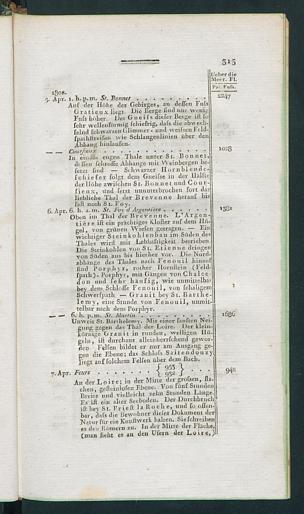 515
Ueber die
Meer. Fl.
Par. Fuss.
1802.
5. Apr. 1. h. p.m. St. Bonnet . . . . . . 2247
Auf der Höhe des Gebirges, an dessen Fuss
Gratieux liegt. Die Berge sind nur wenig
Fuss höher. Der Gneiss dieser Berge ist so
sehr wellenförmig schiefrig, dass die abwech-
selnd schwarzen Glimmer- und weissen Feld-
spathstreifen wie Schlangenlinien über den
Abhang hinlaufen.
— — Coursieux . . . . . . 1028
In einem engen Thale unter St. Bonnet,
dessen schroffe Abhänge mit Weinbergen be-
setzt sind — Schwarzer Hornblende-
schiefer folgt dem Gneisse in der Hälfte
der Höhe zwischen St. Bonnet und Cour-
sieux, und setzt ununterbrochen fort das
liebliche Thal der Brevenne herauf bis
fast nach St. Foy.
6. Apr. 6. h. a.m. St. Foy l'Argentière . . 1381
Oben im Thal der Brevenne. L'Argen-
tière ist ein prächtiges Kloster auf dem Hü-
gel, von grünen Wiesen getragen. — Ein
wichtiger Steinkohlenbau im Süden des
Thales wird mit Lebhaftigkeit betrieben.
Die Steinkohlen von St. Etienne dringen
von Süden aus bis hierher vor. Die Nord-
abhänge des Thales nach Fenouil hinauf
sind Porphyr, rother Hornstein (Feld-
spath). Porphyr, mit Gängen von Chalce-
don und sehr häufig, wie unmittelbar
bey dem Schlosse Fenouil, von schaligem
Schwerspath — Granit bey St. Barthe-
lemy, eine Stunde von Fenouil, unmit-
telbar nach dem Porphyr.
— — 6. h. p.m. St. Martin . . . . . 1686
Unweit St. Barthelemy. Mit einer sanften Nei-
gung gegen das Thal der Loire. Der klein-
körnige Granit in runden, welligen Hü-
geln, ist durchaus alleinherrschend gewor-
den. Felsen bildet er nur am Ausgang ge-
gen die Ebene; das Schloss Saitendouzy
liegt auf solchen Felsen über dem Bach.
7. Apr. Feurs . . . { 953 / 932 } . . . 942
An der Loire; in der Mitte der grossen, fla-
chen, gesteinlosen Ebene. Von fünf Stunden
Breite und vielleicht zehn Stunden Länge.
Es ist ein alter Seeboden. Der Durchbruch
ist bey St. Priest la Roche, und so offen-
bar, dass die Bewohner dieses Dokument der
Natur für ein Kunstwerk halten. Sie schreiben
es den Römern zu. In der Mitte der Fläche,
(man sieht es an den Ufern der Loire,)